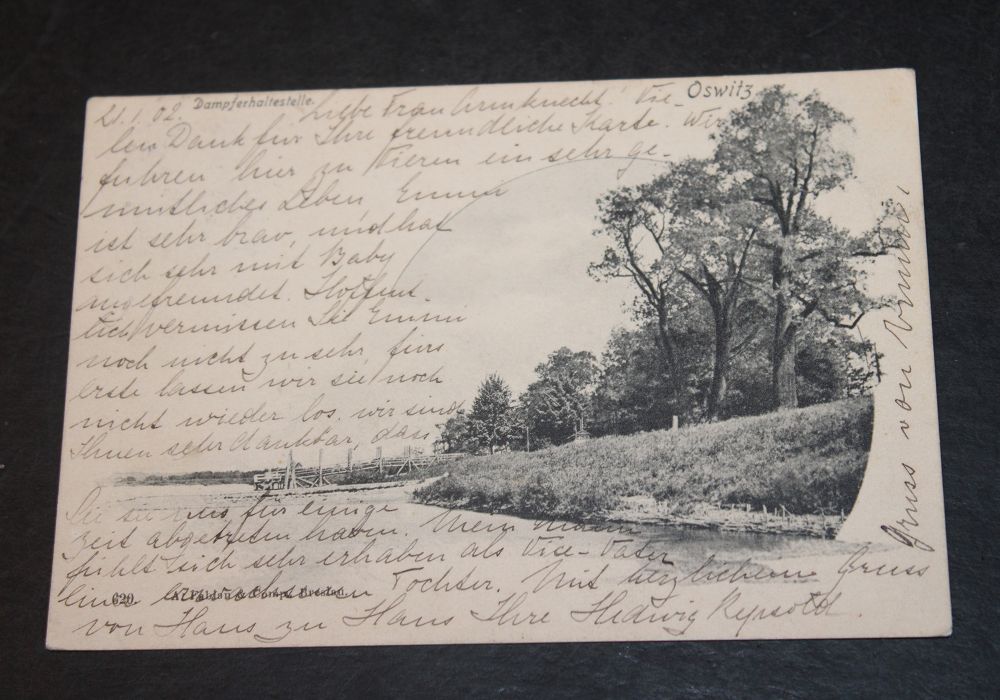 Dampferhaltestelle.
Oswitz
21.1.02. Liebe Frau Armknecht! Vie-
len Dank für Ihre freundliche Karte. Wir
führen hier zu Vieren ein sehr ge-
mütliches Leben. Emmi
ist sehr brav, und hat
sich sehr mit Baby
angefreundet. Hoffent-
lich vermissen Sie Emmi
noch nicht zu sehr, fürs
erste lassen wir sie noch
nicht wieder los. wir sind
Ihnen sehr dankbar, dass
Sie sie uns für einige
Zeit abgetreten haben. Mein Mann
fühlt sich sehr erhaben als Vice-Vater
einer Tochter. Mit herzlichem Gruss
von Haus zu Haus Ihre Hedwig
Gruss von Emmi.
620